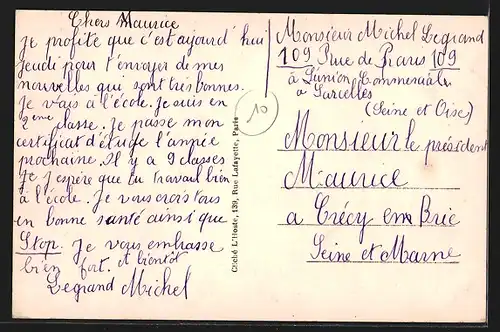 Chers Maurice
Je profite que c'est aujourd'hui
jeudi pour t'envoyer de mes
nouvelles qui sont très bonnes.
Je vais à l'école. Je suis en
2ème classe. Je passe mon
certificat d'étude l'année
prochaine. Il y a 9 classes
Je j'espère que tu travail bien
à l'école. Je vous crois tous
en bonne santé ainsi que
Stop. Je vous embrasse
bien fort. A bientôt
Legrand Michel
10
Cliché L'Hoste, 139, Rue Lafayette, Paris
Monsieur Michel Legrand
109 Rue de Paris 109
à l'Union Commerciale
à Sarcelles
(Seine et Oise)
Monsieur le président
Maurice
à Crécy en Brie
Seine et Marne